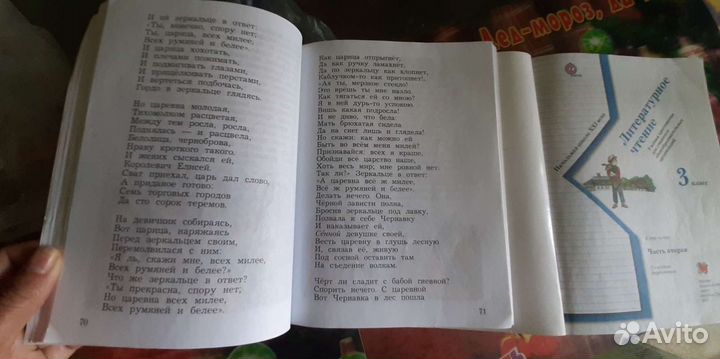 И ей зеркальце в ответ:
«Ты, конечно, спору нет;
Ты, царица, всех милее,
Всех румяней и белее».
И царица хохотать,
И плечами пожимать,
И подмигивать глазами,
И прищёлкивать перстами,
И вертеться подбочась,
Гордо в зеркальце глядясь.
Но царевна молодая,
Тихомолком расцветая,
Между тем росла, росла,
Поднялась — и расцвела,
Белолица, черноброва,
Нраву кроткого такого.
И жених сыскался ей,
Королевич Елисей.
Сват приехал, царь дал слово,
А приданое готово:
Семь торговых городов
Да сто сорок теремов.
На девичник собираясь,
Вот царица, наряжаясь
Перед зеркальцем своим,
Перемолвилася с ним:
«Я ль, скажи мне, всех милее,
Всех румяней и белее?»
Что же зеркальце в ответ?
«Ты прекрасна, спору нет;
Но царевна всех милее,
Всех румяней и белее».
70
Как царица отпрыгнёт,
Да как ручку замахнёт,
Да по зеркальцу как хлопнет,
Каблучком-то как притопнет!..
«Ах ты, мерзкое стекло!
Это врёшь ты мне назло.
Как тягаться ей со мною?
Я в ней дурь-то успокою.
Вишь какая подросла!
И не диво, что бела:
Мать брюхатая сидела
Да на снег лишь и глядела!
Но скажи: как можно ей
Быть во всём меня милей?
Признавайся: всех я краше.
Обойди всё царство наше,
Хоть весь мир; мне ровной нет.
Так ли?» Зеркальце в ответ:
«А царевна всё ж милее,
Всё ж румяней и белее».
Делать нечего. Она,
Чёрной зависти полна,
Бросив зеркальце под лавку,
Позвала к себе Чернавку
И наказывает ей,
Сенной девушке своей,
Весть царевну в глушь лесную
И, связав её, живую
Под сосной оставить там
На съедение волкам.
Чёрт ли сладит с бабой гневной?
Спорить нечего. С царевной
Вот Чернавка в лес пошла
71
Начальная школа XXI века
Литературное
чтение
3 класс
Часть вторая
Дед-мороз,
Avito